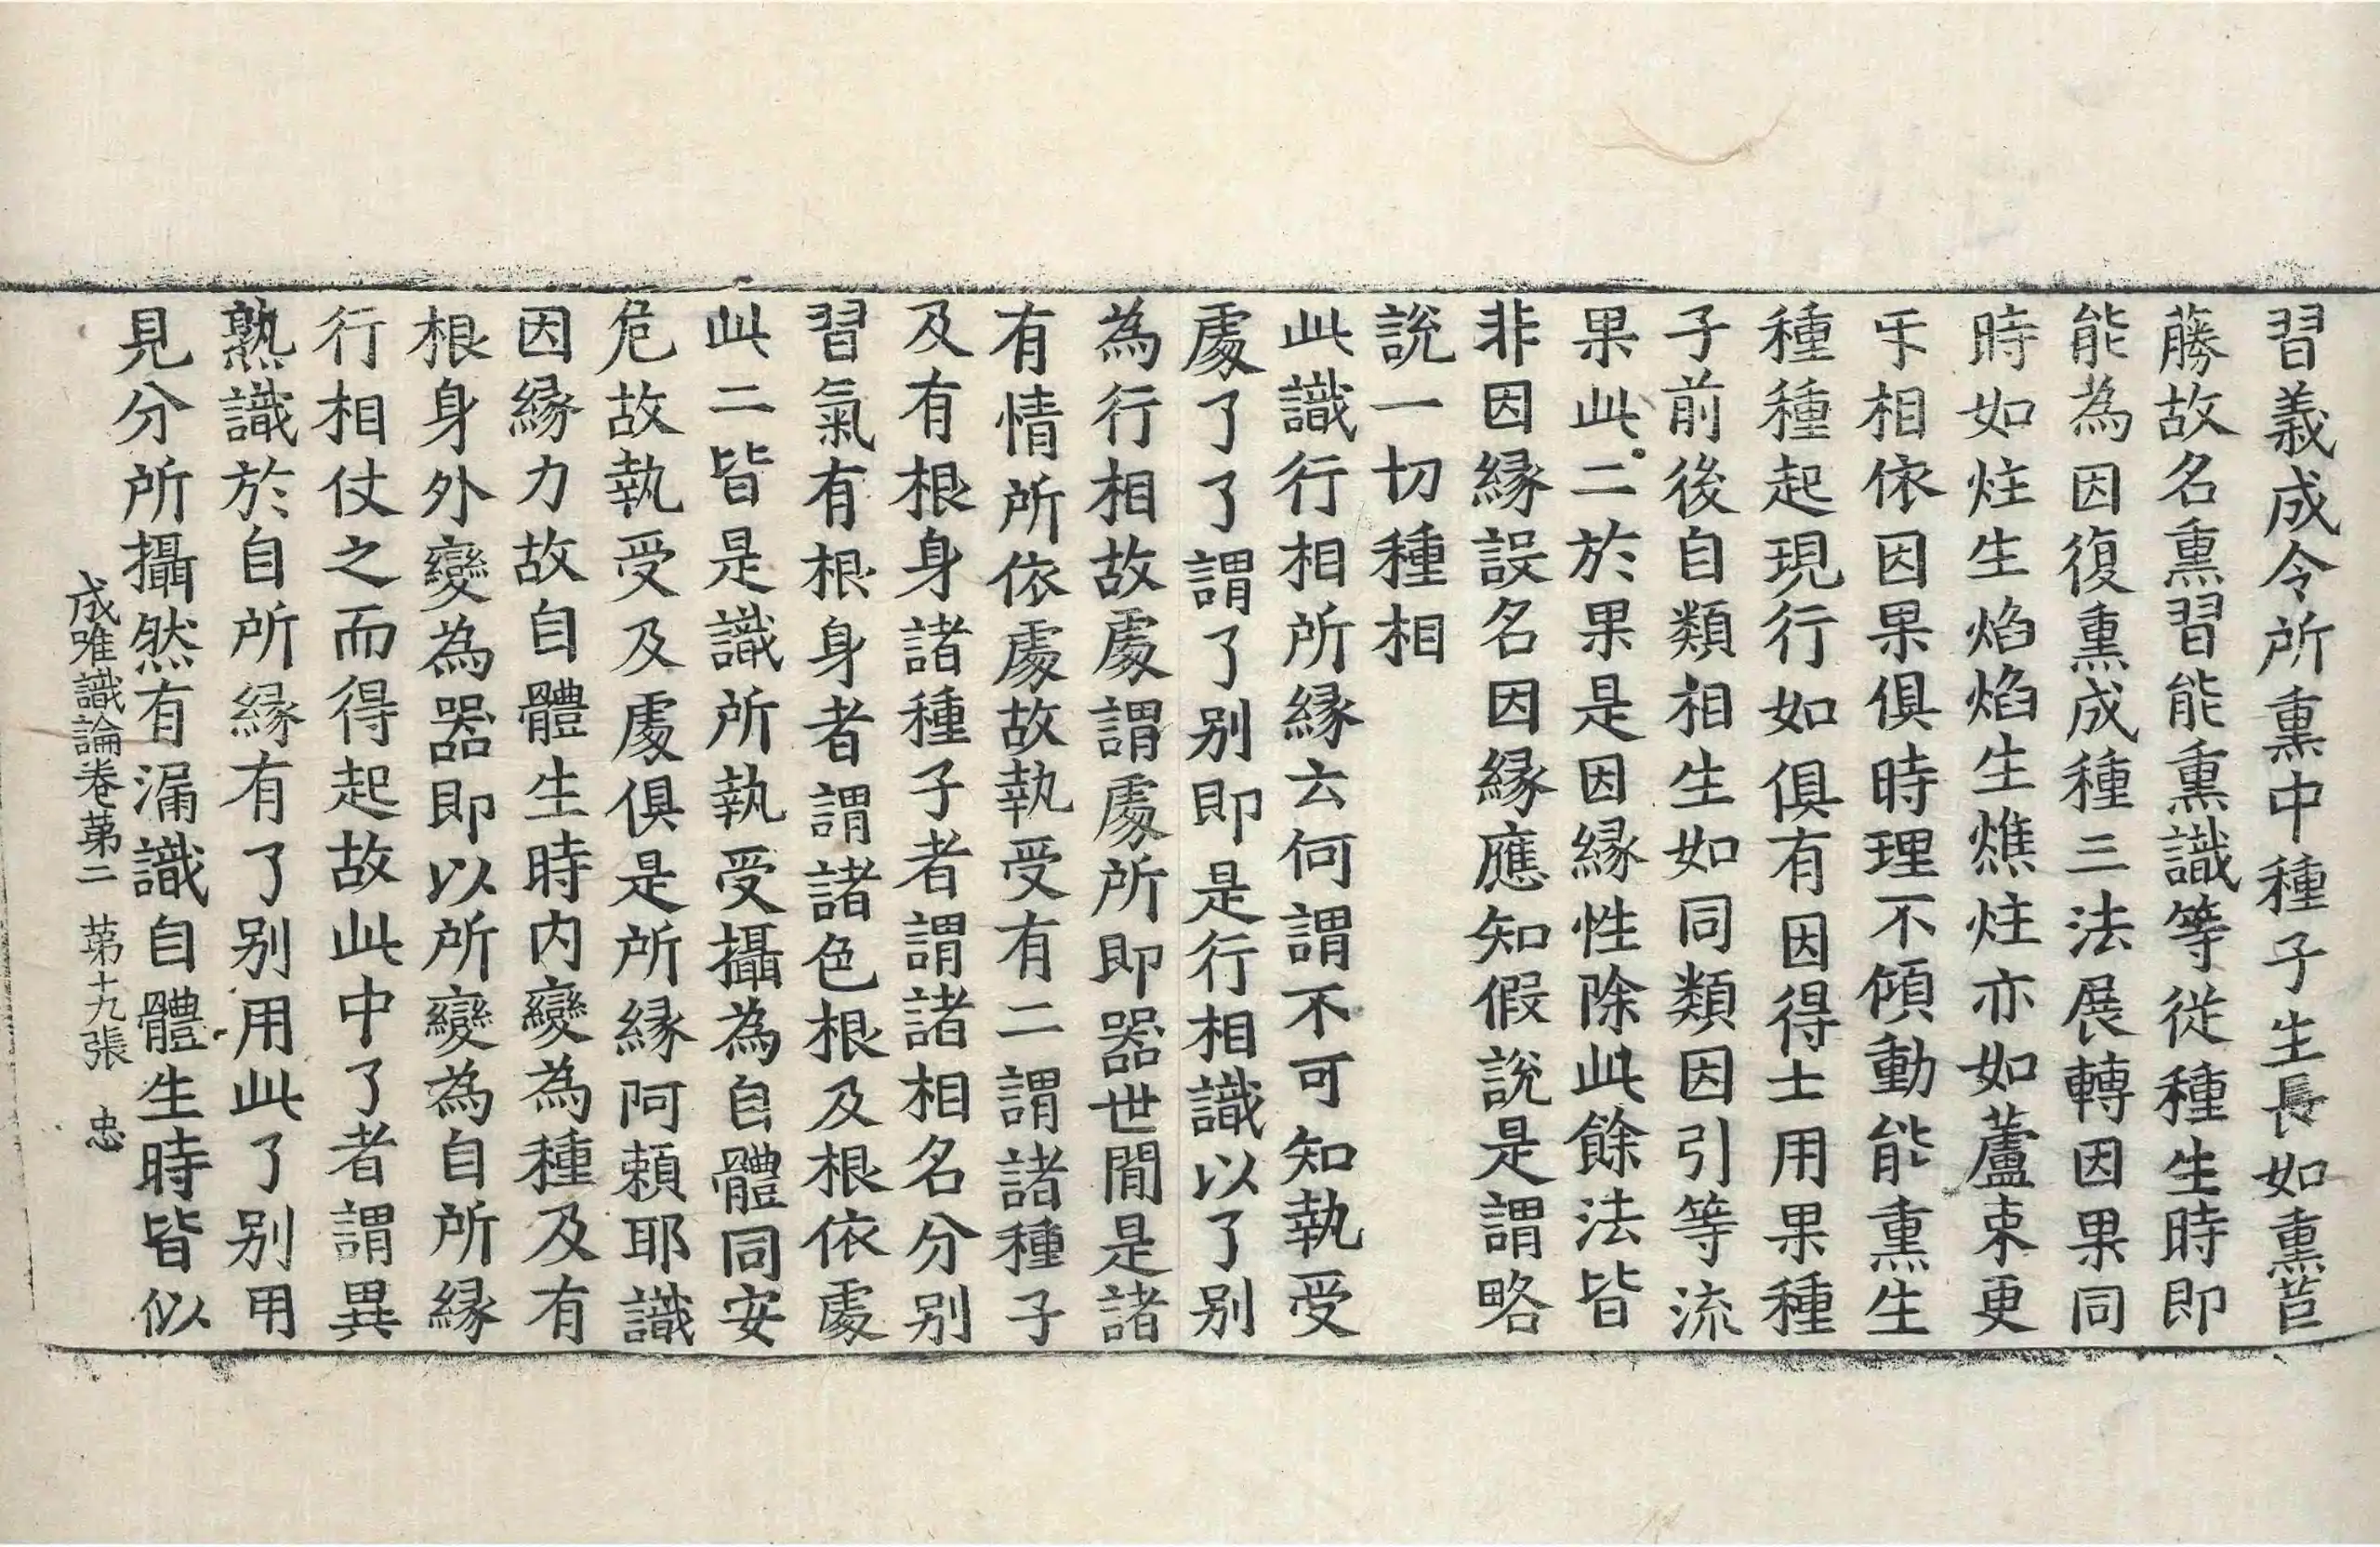 習義成令所熏中種子生長如熏苣
藤故名熏習能熏識等從種生時即
能為因復熏成種三法展轉因果同
時如炷生焰焰生燋炷亦如蘆束更
㸦相依因果俱時理不傾動能熏生
種種起現行如俱有因得士用果種
子前後自類相生如同類因引等流
果此二於果是因緣性除此餘法皆
非因緣設名因緣應知假說是謂略
說一切種相
此識行相所緣云何謂不可知執受
處了了謂了別即是行相識以了別
為行相故處謂處所即器世間是諸
有情所依處故執受有二謂諸種子
及有根身諸種子者謂諸相名分別
習氣有根身者謂諸色根及根依處
此二皆是識所執受攝為自體同安
危故執受及處俱是所緣阿賴耶識
因緣力故自體生時內變為種及有
根身外變為器即以所變為自所緣
行相仗之而得起故此中了者謂異
熟識於自所緣有了別用此了別用
見分所攝然有漏識自體生時皆似
成唯識論卷第二 第十九張 忠